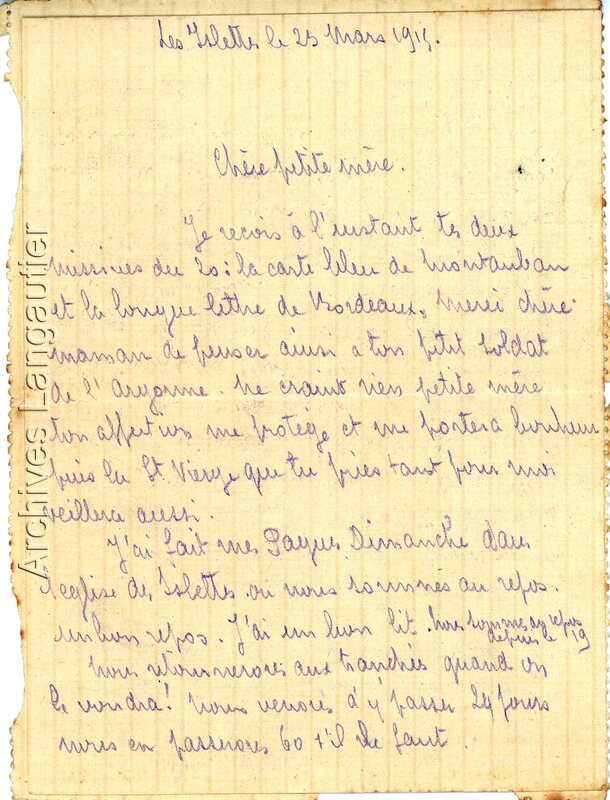 Les Islettes le 25 Mars 1915.
Chère petite mère.
Je recois à l'instant tes deux
missives du 20 : la carte bleu de Montauban
et la longue lettre de Bordeaux. Merci chère
maman de penser ainsi a ton petit soldat
de l'Argonne. Ne craint rien petite mère
ton affection me protège et me portera bonheur
puis la St Vierge que tu pries tant pour moi
veillera aussi.
J'ai fait mes Paques Dimanche dans
l'eglise des Islettes ou nous sommes au repos.
un bon repos. J'ai un bon lit. Nous sommes au repos
depuis le 19
Nous retournerons aux tranchées quand on
le voudra! Nous venons d'y passer 24 jours
nous en passerons 60 s'il le faut.
Archives Langautier